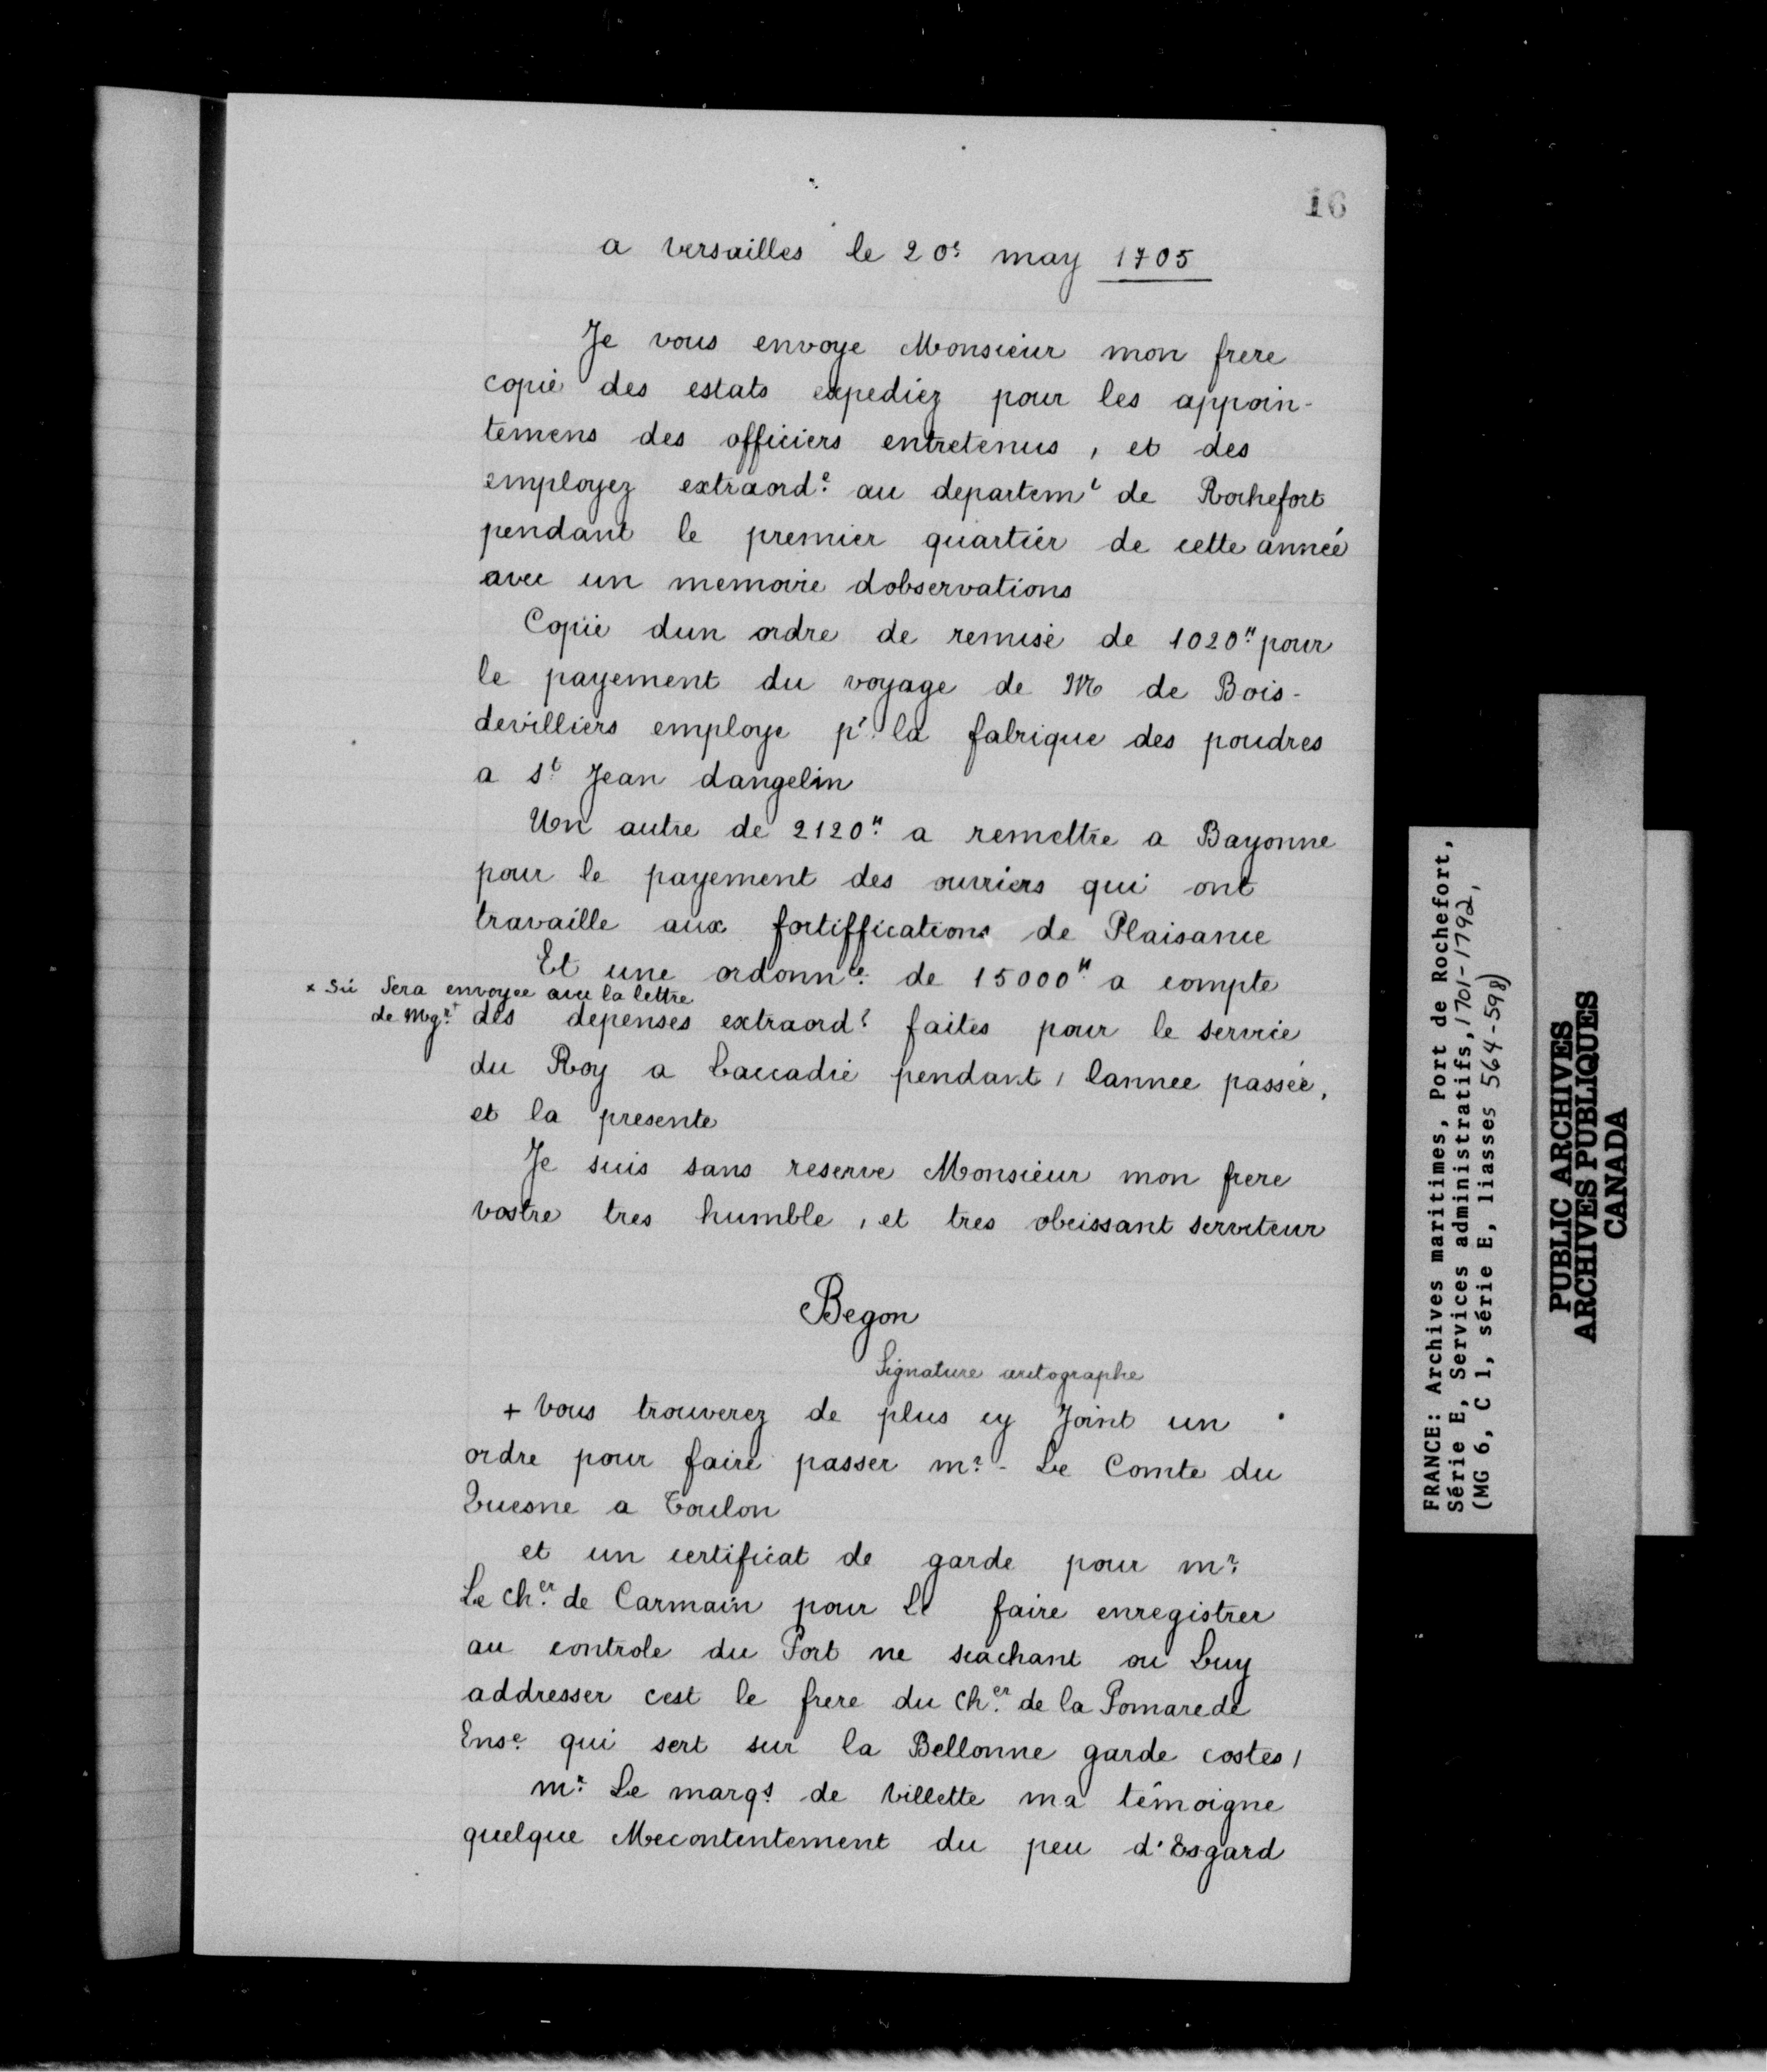 16
a versailles le 20e may 1705
Je vous envoye Monsieur mon frere
copie des estats expediez pour les appoin-
temens des officiers entretenus, et des
employez extraord.e au departemt de Rochefort
pendant le premier quartier de cette année
avec un memoire dobservations
Copie dun ordre de remise de 1020tt pour
le payement du voyage de M de Bois-
devilliers employe pr la fabrique des poudres
a St Jean dangelin
Un autre de 2120tt a remettre a Bayonne
pour le payement des ouvriers qui ont
travaille aux fortiffications de Plaisance
Et une ordonnce de 15000tt a compte
x Sii Sera envoyee avec la lettre
de Mgr + des depenses extraord.e faites pour le service
du Roy a Laccadie pendant, lannee passée,
et la presente
Je suis sans reserve Monsieur mon frere
vostre tres humble, et tres obeissant serviteur
Begon
Signature autographe
+ Vous trouverez de plus cy Joint un
ordre pour faire passer mr - Le Comte du
Quesne a Toulon
et un certificat de garde pour mr
Le cher de Carmain pour le faire enregistrer
au controle du Port ne scachant ou Luy
addresser cest le frere du cher de la Pomarede
Ense qui sert sur la Bellonne garde costes,
mr Le marqs de Villette ma témoigne
quelque Mecontentement du peu d'Esgard
FRANCE: Archives maritimes, Port de Rochefort,
Série E, Services administratifs, 1701-1792,
(MG 6, C 1, série E, liasses 564-598)
PUBLIC ARCHIVES
ARCHIVES PUBLIQUES
CANADA